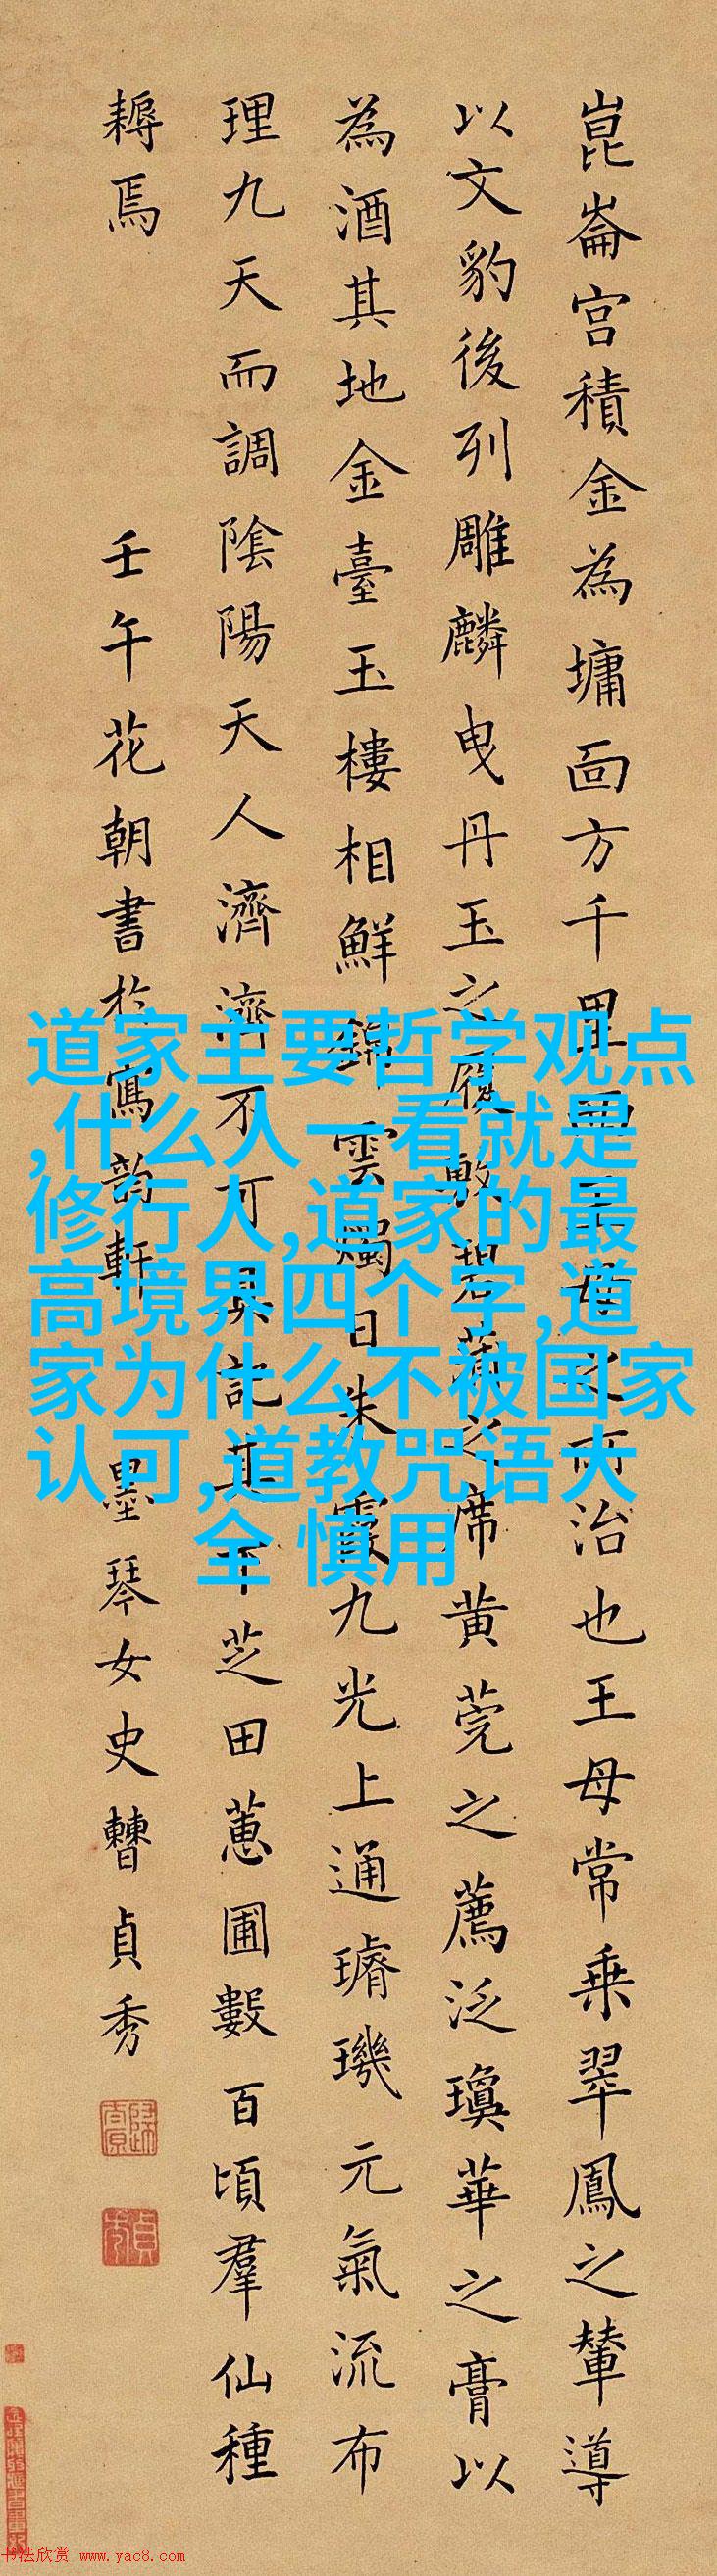 崑崙宮積金為墉面方千里西王母之所治也王母常乘翠鳳之輦導
以文豹後列雕麟曳丹玉之履敷碧蒲之席黄莞之薦泛瓊華之膏以
為酒其地金臺玉樓相鮮錦雲燭日朱霞九光上通璿璣元氣流布
理九天而調陰陽天人濟濟不可具記其下芝田蕙圃數百頃羣仙種
耨焉 壬午花朝書於寫韵軒 墨琴女史曹貞秀
道家主要哲学观点
,什么人一看就是
修行人,道家的最
高境界四个字,道
家为什么不被国家
认可,道教咒语大
全 慎用
书法欣赏 www.yac8.com